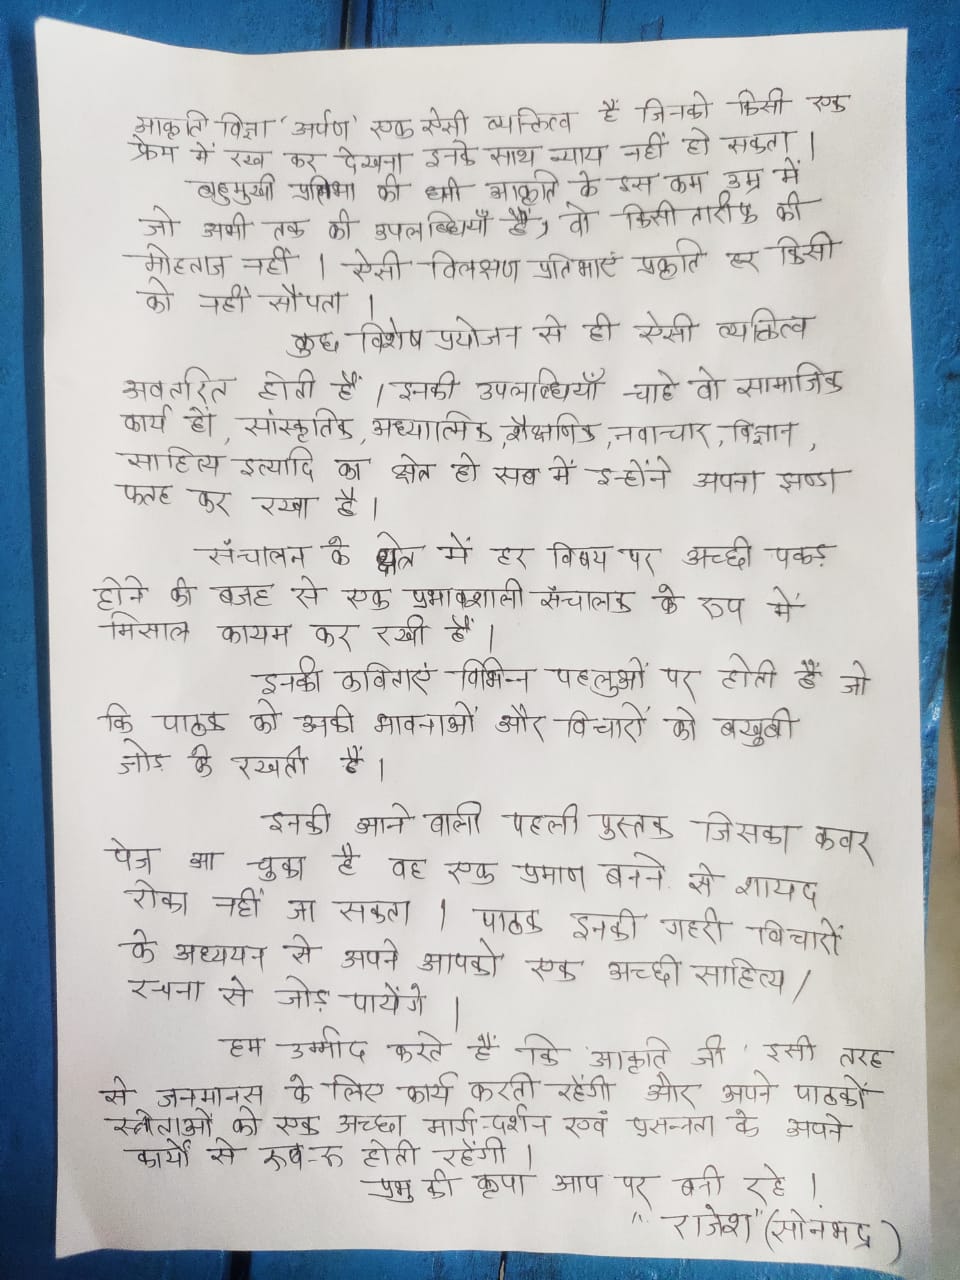 आकृति विज्ञा 'अर्पण' एक ऐसी व्यक्तित्व हैं जिनको किसी एक
फ्रेम में रख कर देखना इनके साथ न्याय नहीं हो सकता ।
बहुमुखी प्रतिभा की धनी आकृति के इस कम उम्र में
जो अभी तक की उपलब्धियाँ हैं, वो किसी तारीफ की
मोहताज नहीं । ऐसी विलक्षण प्रतिभाएं प्रकृति हर किसी
को नहीं सौंपता ।
कुछ विशेष प्रयोजन से ही ऐसी व्यक्तित्व
अवतरित होती हैं । इनकी उपलब्धियाँ चाहे वो सामाजिक
कार्य हों, सांस्कृतिक, अध्यात्मिक, शैक्षणिक, नवाचार, विज्ञान,
साहित्य इत्यादि का क्षेत्र हो सब में इन्होंने अपना झण्डा
फतह कर रखा है ।
संचालन के क्षेत्र में हर विषय पर अच्छी पकड़
होने की वजह से एक प्रभावशाली संचालक के रूप में
मिसाल कायम कर रखी हैं ।
इनकी कविताएं विभिन्न पहलुओं पर होती हैं जो
कि पाठक को उनकी भावनाओं और विचारों को बखुबी
जोड़ के रखती हैं ।
इनकी आने वाली पहली पुस्तक जिसका कवर
पेज आ चुका है वह एक प्रमाण बनने से शायद
रोका नहीं जा सकता । पाठक इनकी गहरी विचारों
के अध्ययन से अपने आपको एक अच्छी साहित्य/
रचना से जोड़ पायेंगे ।
हम उम्मीद करते हैं कि 'आकृति जी' इसी तरह
से जनमानस के लिए कार्य करती रहेंगी और अपने पाठकों
स्त्रोताओं को एक अच्छा मार्ग-दर्शन एवं प्रसन्नता के अपने
कार्यों से रूब-रू होती रहेंगी ।
प्रभु की कृपा आप पर बनी रहे ।
"राजेश" (सोनभद्र)